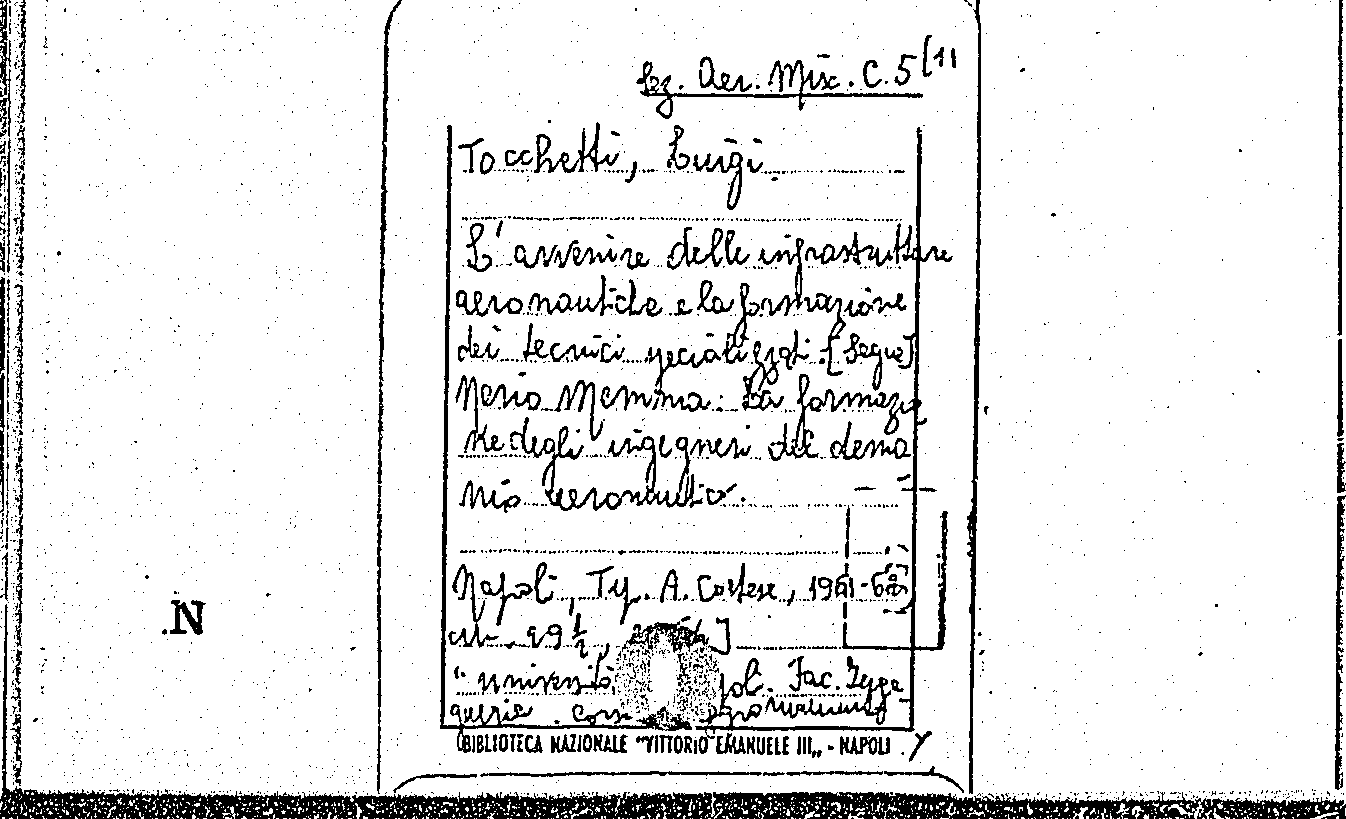 Sez. Aer. Misc. C. 5 (11
Tocchetti, Luigi.
L'avvenire delle infrastrutture
aeronautiche e la formazione
dei tecnici specializzati. [Segue]
Nerio Memma: La formazio
ne degli ingegneri del dema
nio aeronautico.
Napoli, Tip. A. Cortese, 1961-62
cm. 29 1/2,
"Università Fac. Inge
gneria. Corso
BIBLIOTECA NAZIONALE "VITTORIO EMANUELE III„ - NAPOLI
N